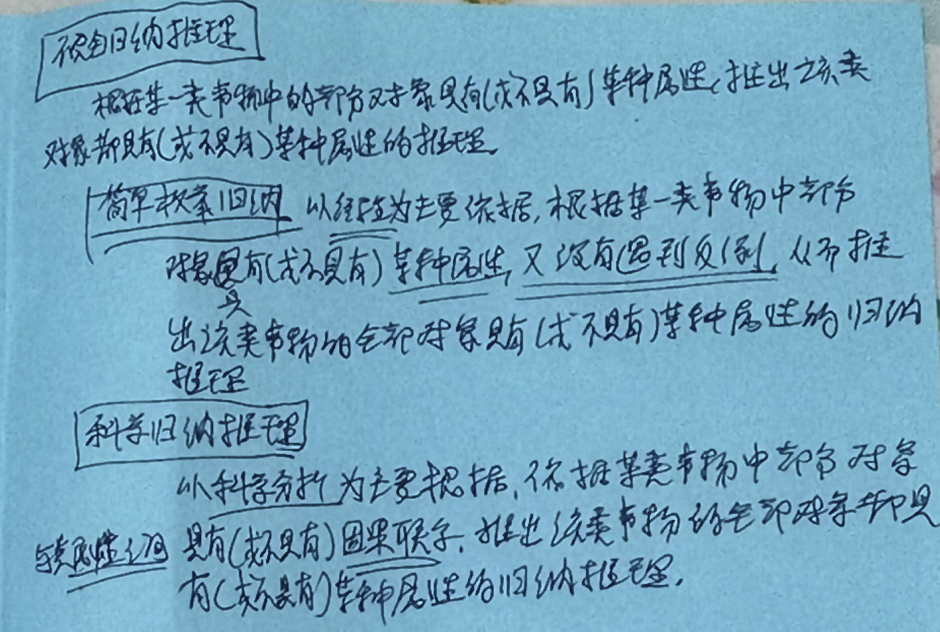 不完全归纳推理
根据某一类事物中的部分对象具有(或不具有)某种属性,推出该类
对象都具有(或不具有)某种属性的推理.
简单枚举归纳 以经验为主要依据,根据某一类事物中部分
对象具有(或不具有)某种属性,又没有遇到反例,从而推
出该类事物的全部对象具有(或不具有)某种属性的归纳
推理
科学归纳推理
以科学分析为主要根据,依据某类事物中部分对象
与某属性之间 具有(或不具有)因果联系,推出该类事物的全部对象都具
有(或不具有)某种属性的归纳推理.